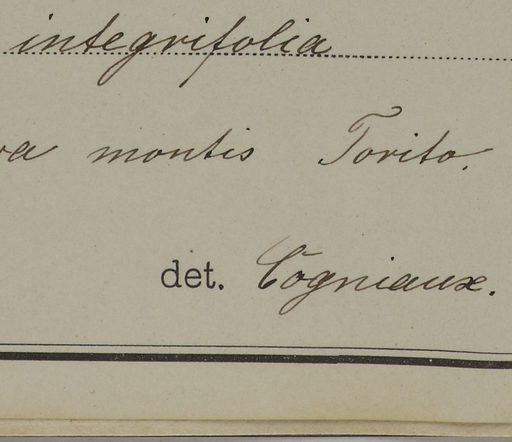 integrifolia
montis Torito.
det. Cogniaux.